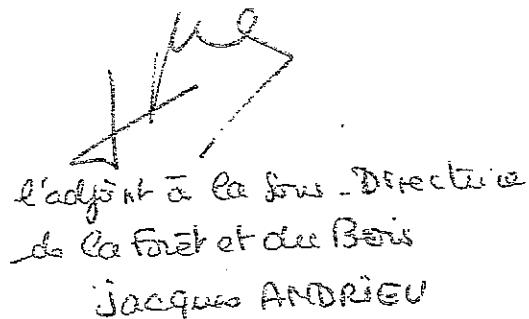 l'adjoint à la Sous-Directrice
de la Forêt et du Bois
Jacques ANDRIEU